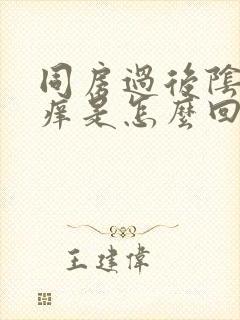 同房過後陰
痒是怎麼回
王建偉